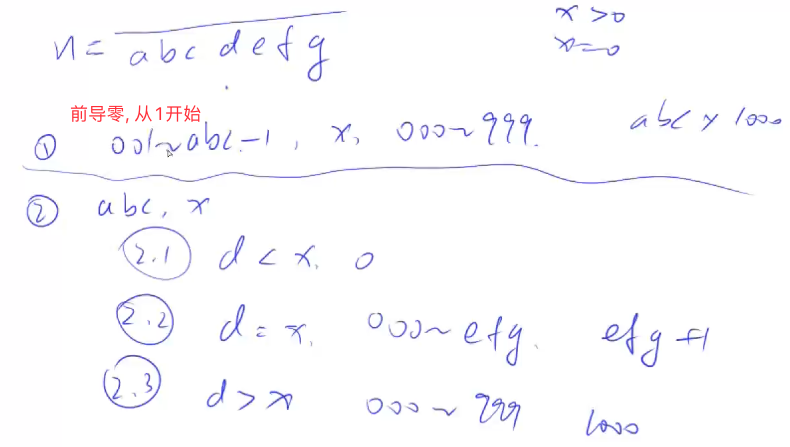 x > 0
n = abcdefg
x = 0
前导零, 从1开始
① 001~abc-1, x, 000~999. abc × 1000
② abc, x
2.1 d < x. 0
2.2 d = x. 000~efg. efg+1
2.3 d > x 000~999 1000